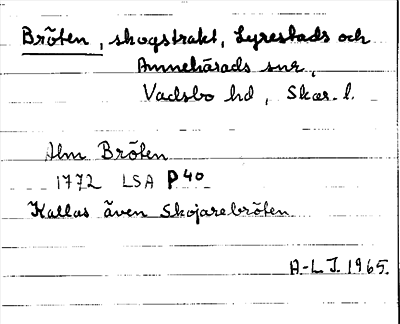 Bröten, skogstrakt, Lyrestads och
Amnehärads snr,
Vadsbo hd, Skar. l.
Alm Bröten
1772 LSA P40
Kallas även Skojarebröten
A-L J. 1965.